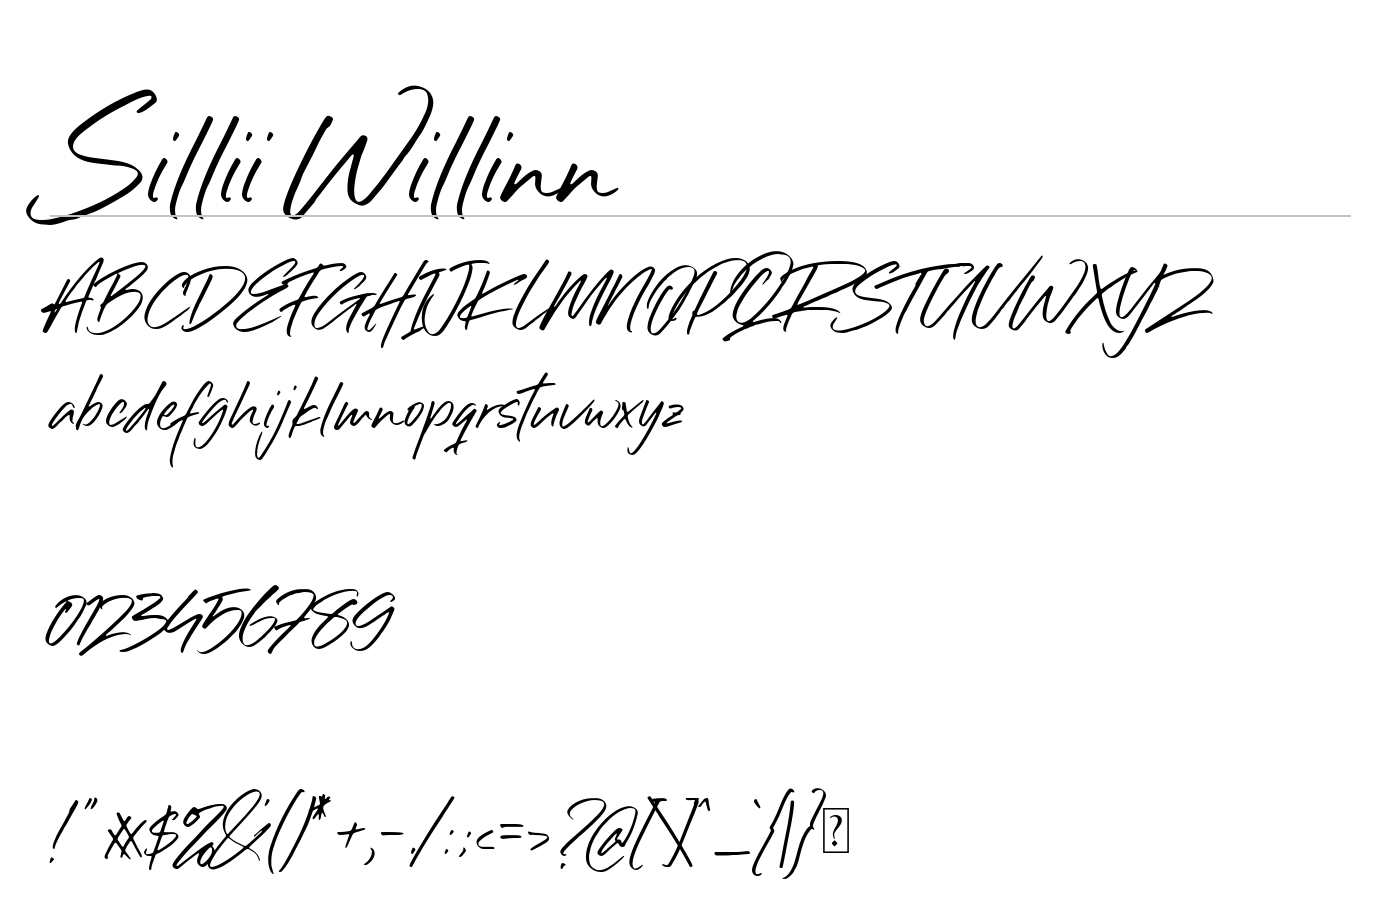 Sillii Willinn
ABCDEFGHIJKLMNOPQRSTUVWXYZ
abcdefghijklmnopqrstuvwxyz
0123456789
!"#$%&'()*+,-./:;<=>?@[\]^_`{|}